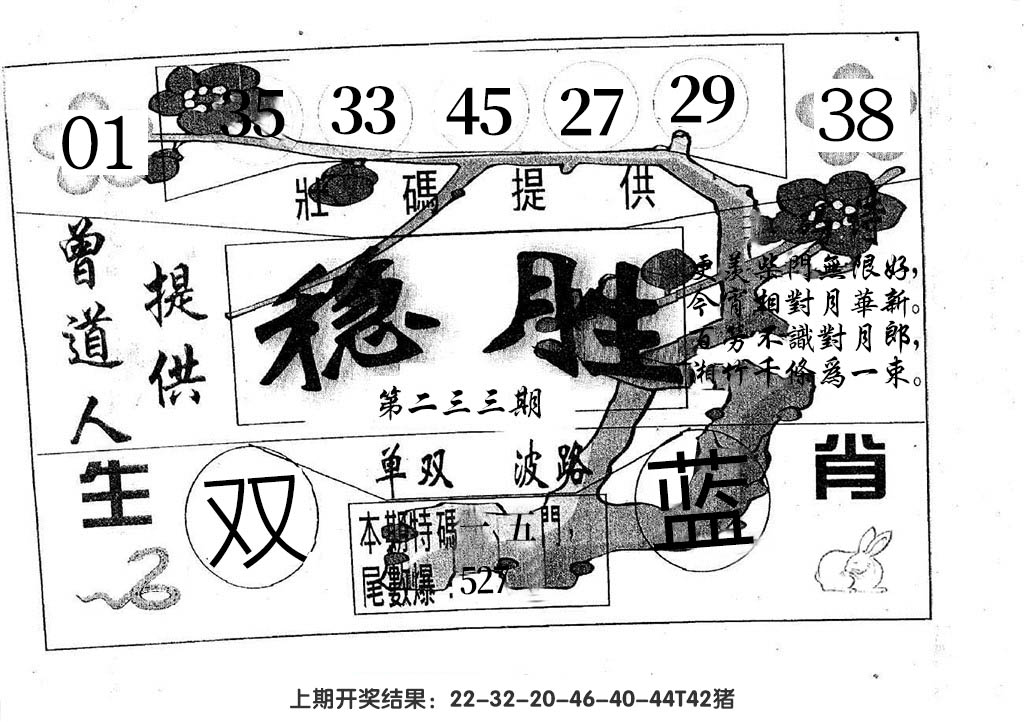 01 35 33 45 27 29 38
壯碼提供
特
曾道人
提供
稳胜
更羡柴門無限好，
今宵相對月華新。
有勞不識對月郎，
湘竹千條為一束。
第二三三期
单双 波路
生 双 蓝 肖
本期特碼一、五門，
尾數爆：527
上期开奖结果：22-32-20-46-40-44T42猪